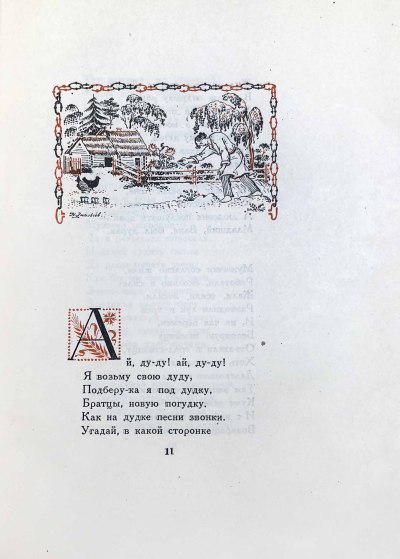 Ай, ду-ду! ай, ду-ду!
Я возьму свою дуду,
Подберу-ка я под дудку,
Братцы, новую погудку.
Как на дудке песни звонки.
Угадай, в какой сторонке
11